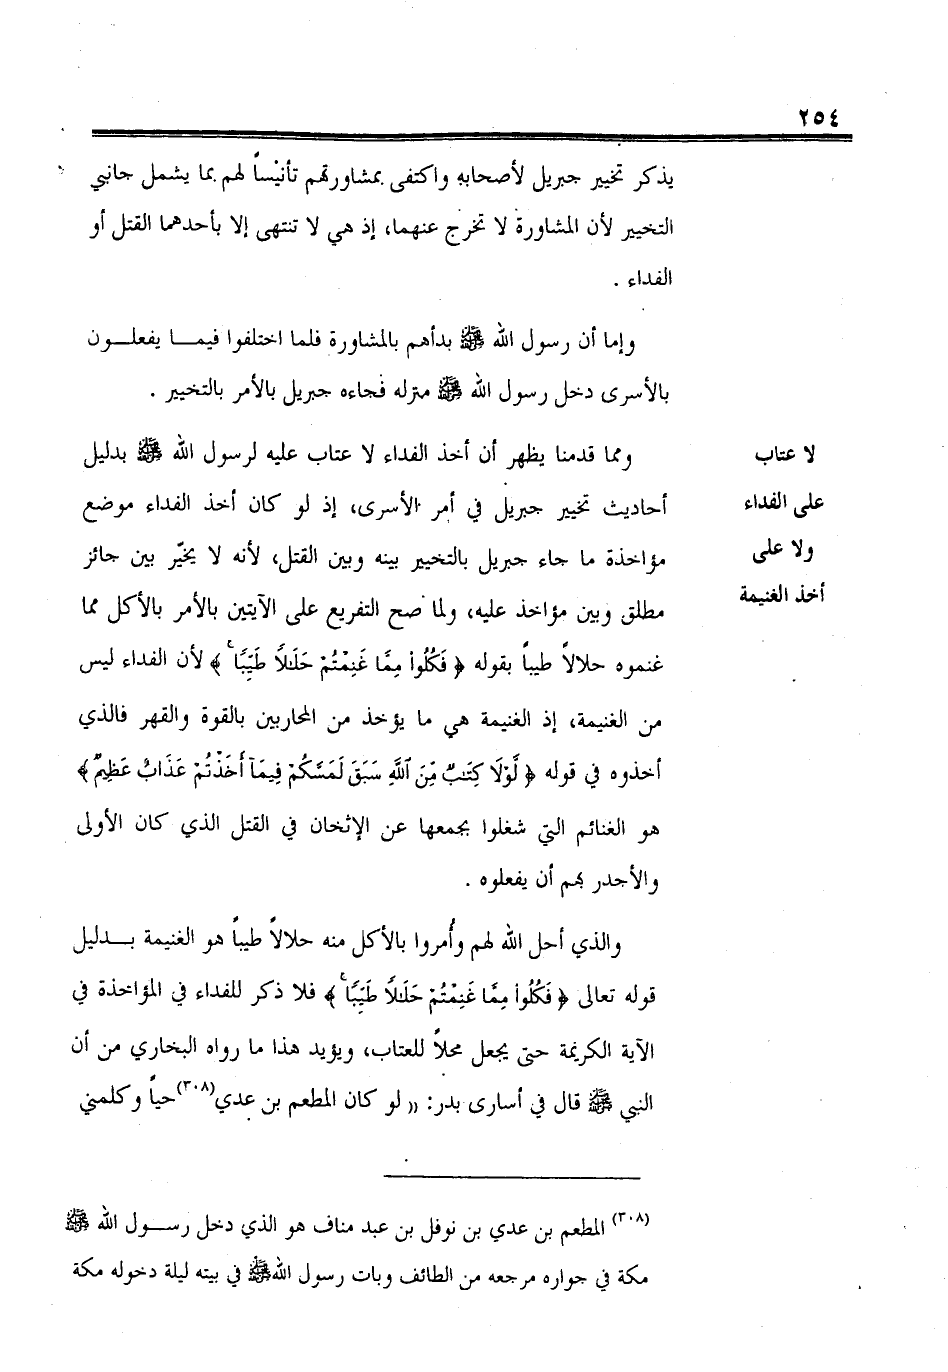 ٢٥٤
يذكر تخيير جبريل لأصحابه واكتفى بمشاورتهم تأنيْساً لهم بما يشمل جانبي
التخيير لأن المشاورة لا تخرج عنهما، إذ هي لا تنتهى إلا بأحدهما القتل أو
الفداء .
وإما أن رسول الله ﷺ بدأهم بالمشاورة فلما اختلفوا فيمـــا يفعلـــون
بالأسرى دخل رسول الله ﷺ منزله فجاءه جبريل بالأمر بالتخيير .
لا عتاب
على الفداء
ولا على
أخذ الغنيمة
ومما قدمنا يظهر أن أخذ الفداء لا عتاب عليه لرسول الله ﷺ بدليل
أحاديث تخيير جبريل في أمر الأسرى، إذ لو كان أخذ الفداء موضع
مؤاخذة ما جاء جبريل بالتخيير بينه وبين القتل، لأنه لا يخيّر بين جائز
مطلق وبين مؤاخذ عليه، ولما صح التفريع على الآيتين بالأمر بالأكل مما
غنموه حلالاً طيباً بقوله ﴿ فَكُلُوا۟ مِمَّا غَنِمْتُمْ حَلَـٰلًا طَيِّبًا ۚ ﴾ لأن الفداء ليس
من الغنيمة، إذ الغنيمة هي ما يؤخذ من المحاربين بالقوة والقهر فالذي
أخذوه في قوله ﴿ لَّوْلَا كِتَـٰبٌ مِّنَ ٱللَّهِ سَبَقَ لَمَسَّكُمْ فِيمَآ أَخَذْتُمْ عَذَابٌ عَظِيمٌ ﴾
هو الغنائم التي شغلوا بجمعها عن الإثخان في القتل الذي كان الأولى
والأجدر بهم أن يفعلوه .
والذي أحل الله لهم وأُمروا بالأكل منه حلالاً طيباً هو الغنيمة بـــدليل
قوله تعالى ﴿ فَكُلُوا۟ مِمَّا غَنِمْتُمْ حَلَـٰلًا طَيِّبًا ۚ ﴾ فلا ذكر للفداء في المؤاخذة في
الآية الكريمة حتى يجعل محلاً للعتاب، ويؤيد هذا ما رواه البخاري من أن
النبي ﷺ قال في أسارى بدر: (( لو كان المطعم بن عدي(٣٠٨) حياً وكلمني
(٣٠٨) المطعم بن عدي بن نوفل بن عبد مناف هو الذي دخل رســول الله ﷺ
مكة في جواره مرجعه من الطائف وبات رسول الله ﷺ في بيته ليلة دخوله مكة